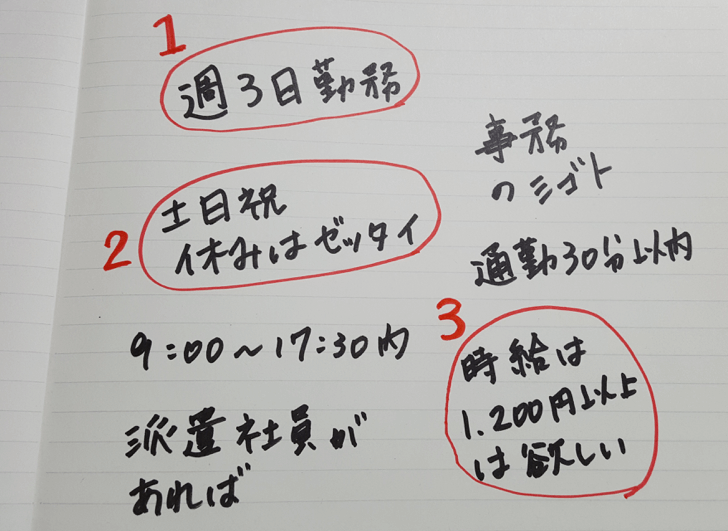 1
週3日勤務
2
土日祝
休みはゼッタイ
9:00〜17:30内
派遣社員が
あれば
事務
のシゴト
通勤30分以内
3
時給は
1.200円以上
は欲しい